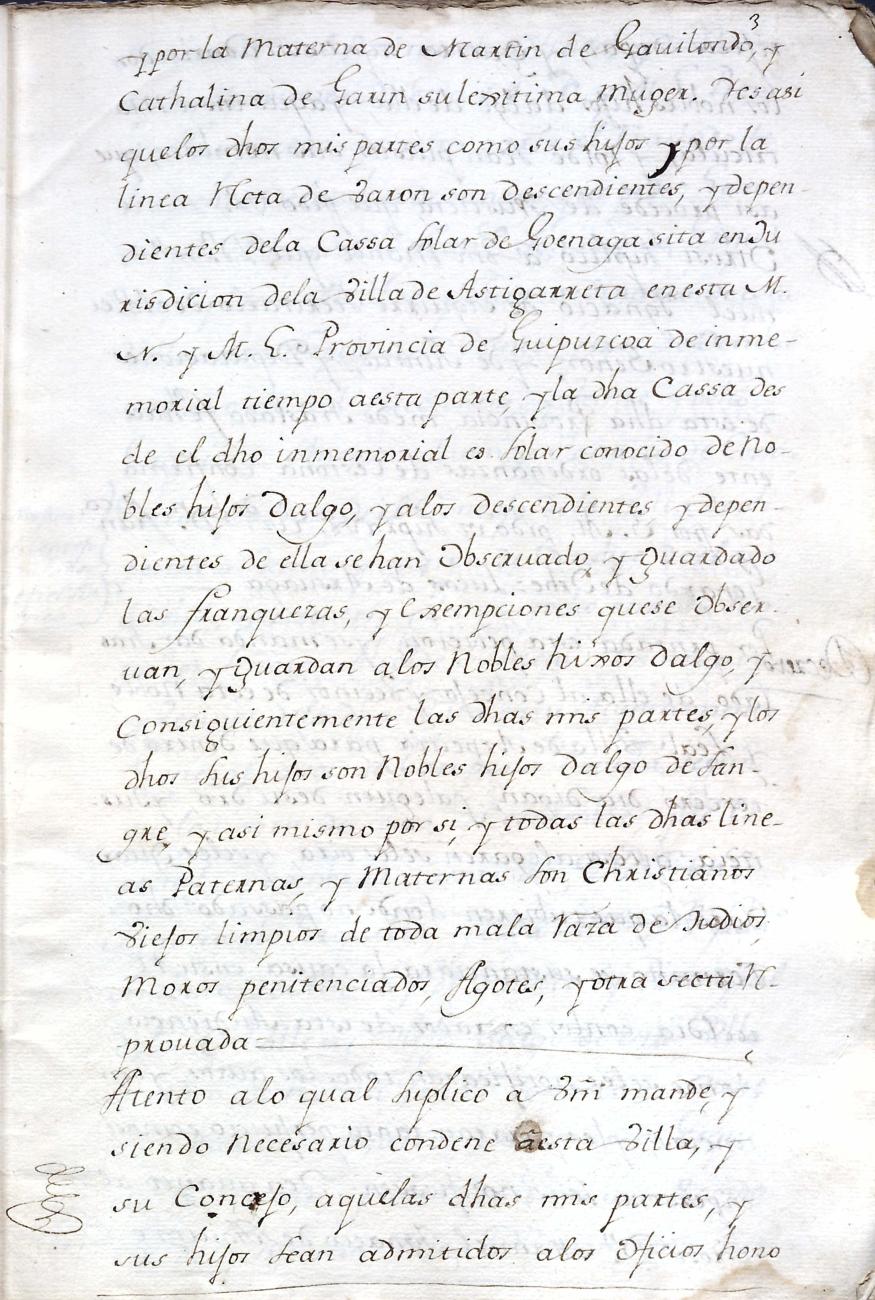 3
y por la Materna de Martin de Gavilondo, y
Cathalina de Garin su lexitima Muger. Yes asi
quelos dhos mis partes como sus hijos y por la
linea Recta de Varon son descendientes, y depen-
dientes dela Cassa Solar de Goenaga sita en Ju
risdicion dela Villa de Astigarreta en esta M.
N. y M. L. Provincia de Guipuzcoa de inme-
morial tiempo aesta parte, y la dha Cassa des
de el dho inmemorial es Solar conocido de No-
bles hijos Dalgo, y alos descendientes y depen-
dientes de ella se han Observado, y Guardado
las franquezas, y Exempciones quese Obser-
van, y Guardan alos Nobles hixos Dalgo, y
Consiguientemente las dhas mis partes, y los
dhos Sus hijos son Nobles hijos Dalgo de San-
gre, y asi mismo por si, y todas las dhas line-
as Paternas, y Maternas Son Christianos
Viejos limpios de toda mala Raza de Judios,
Moros penitenciados, Agotes, y otra secta R-
provada
Atento alo qual Suplico a Vm mande, y
siendo Necesario condene aesta Villa, y
su Concejo, aquelas dhas mis partes, y
sus hijos Sean admitidos alos Oficios hono